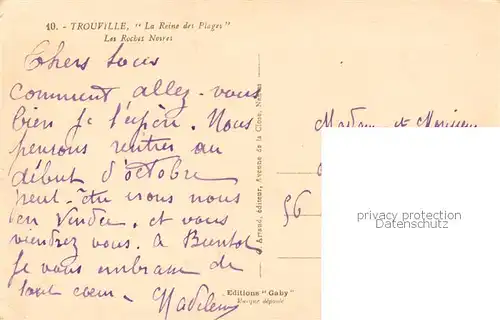 10. - TROUVILLE, "La Reine des Plages"
Les Roches Noires
Chers tous
comment allez-vous
bien je l'espère. Nous
pensons rentrer au
début d'octobre
peut-être irons nous
en Vendée, et vous
viendrez vous. à Bientôt
je vous embrasse de
tout coeur - Madeleine
Artaud, éditeur, Avenue de la Close, Nantes
Editions "Gaby"
Marque déposée
Madame et Monsieur
56
privacy protection
Datenschutz